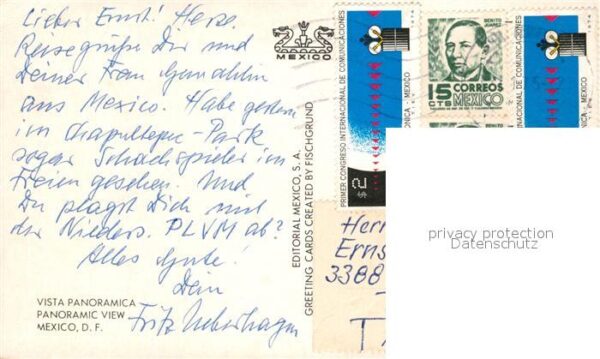 Lieber Ernst! Herz.
Reisegrüße Dir und
Deiner Frau Gemahlin
aus Mexico. Habe gestern
im Chapultepec-Park
sogar Schachspieler im
Freien gesehen. Und
Du plagst Dich mit
der Nieders. PLVM ab?
Alles Gute!
Dein
Fritz
VISTA PANORAMICA
PANORAMIC VIEW
MEXICO, D. F.
MEXICO
EDITORIAL MEXICO, S. A.
GREETING CARDS CREATED BY FISCHGRUND
PRIMER CONGRESO INTERNACIONAL DE COMUNICACIONES
$2
BENITO JUAREZ
15 CORREOS
CTS MEXICO
BENITO
ONICA - MEXICO
Herr
Ernst
3388
privacy protection
Datenschutz